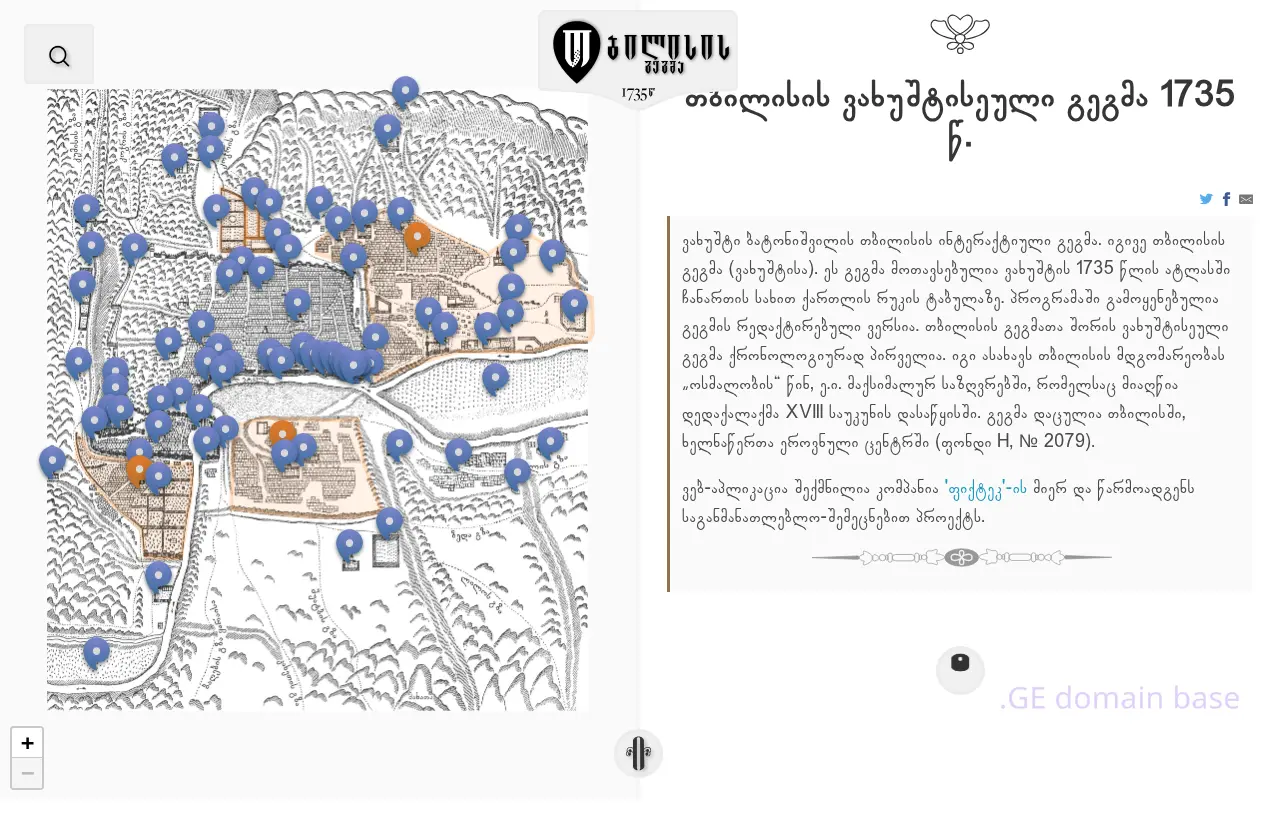 თბილისის
გეგმა
1735წ
თბილისის ვახუშტისეული გეგმა 1735
წ.
ვახუშტი ბატონიშვილის თბილისის ინტერაქტიული გეგმა. იგივე თბილისის
გეგმა (ვახუშტისა). ეს გეგმა მოთავსებულია ვახუშტის 1735 წლის ატლასში
ჩანართის სახით ქართლის რუკის ტაბულაზე. პროგრამაში გამოყენებულია
გეგმის რედაქტირებული ვერსია. თბილისის გეგმათა შორის ვახუშტისეული
გეგმა ქრონოლოგიურად პირველია. იგი ასახავს თბილისის მდგომარეობას
„ოსმალობის“ წინ, ე.ი. მაქსიმალურ საზღვრებში, რომელსაც მიაღწია
დედაქალაქმა XVIII საუკუნის დასაწყისში. გეგმა დაცულია თბილისში,
ხელნაწერთა ეროვნული ცენტრში (ფონდი H, № 2079).
ვებ-აპლიკაცია შექმნილია კომპანია 'ფიქტეკ'-ის მიერ და წარმოადგენს
საგანმანათლებლო-შემეცნებით პროექტს.
.GE domain base
+
−